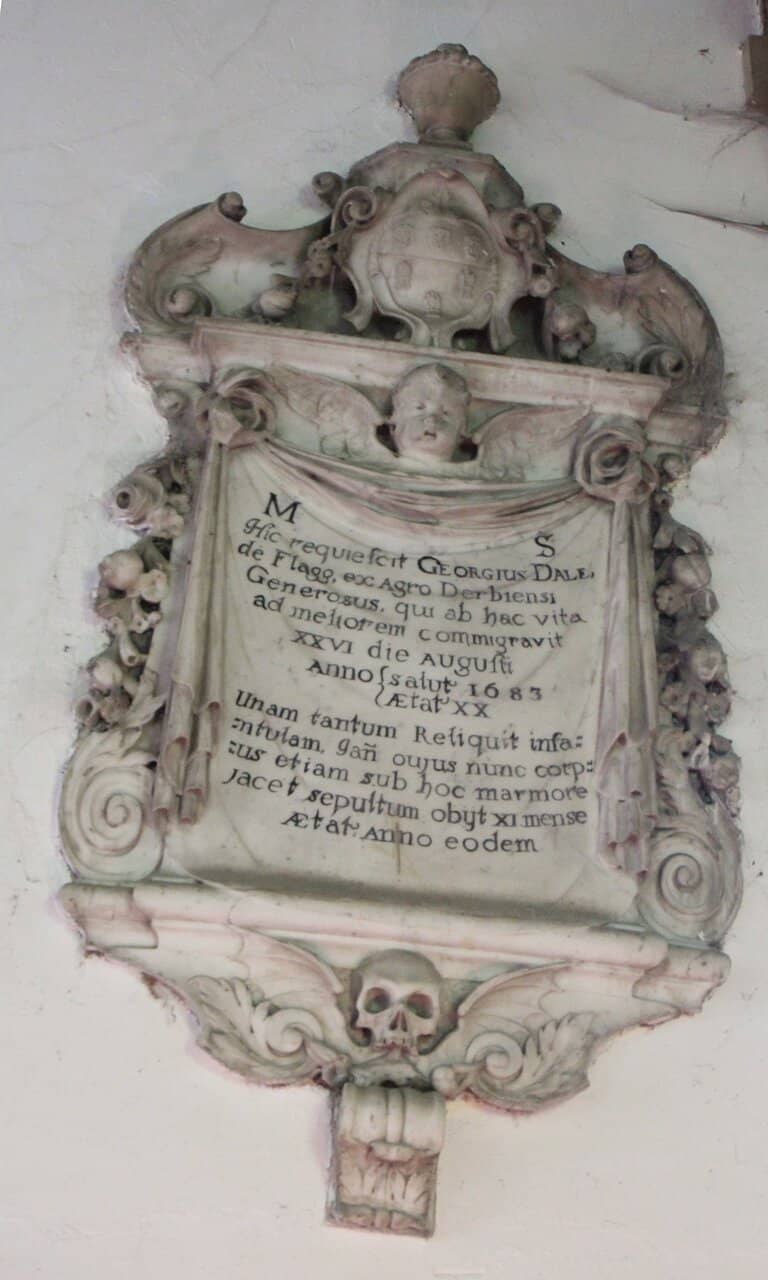 M S
Hic requieſcit GEORGIUS DALE,
de Flagg, ex Agro Derbiensi
Generosus, qui ab hac vita
ad meliorem commigravit
XXVI die AUGUſti
Anno ſalut' 1683
Ætat' XX
Unam tantum Reliquit infa=
=ntulam, gan̄ oujus nunc corp=
=us etiam sub hoc marmore
Jacet sepultum obyt XI mense
Ætat' Anno eodem